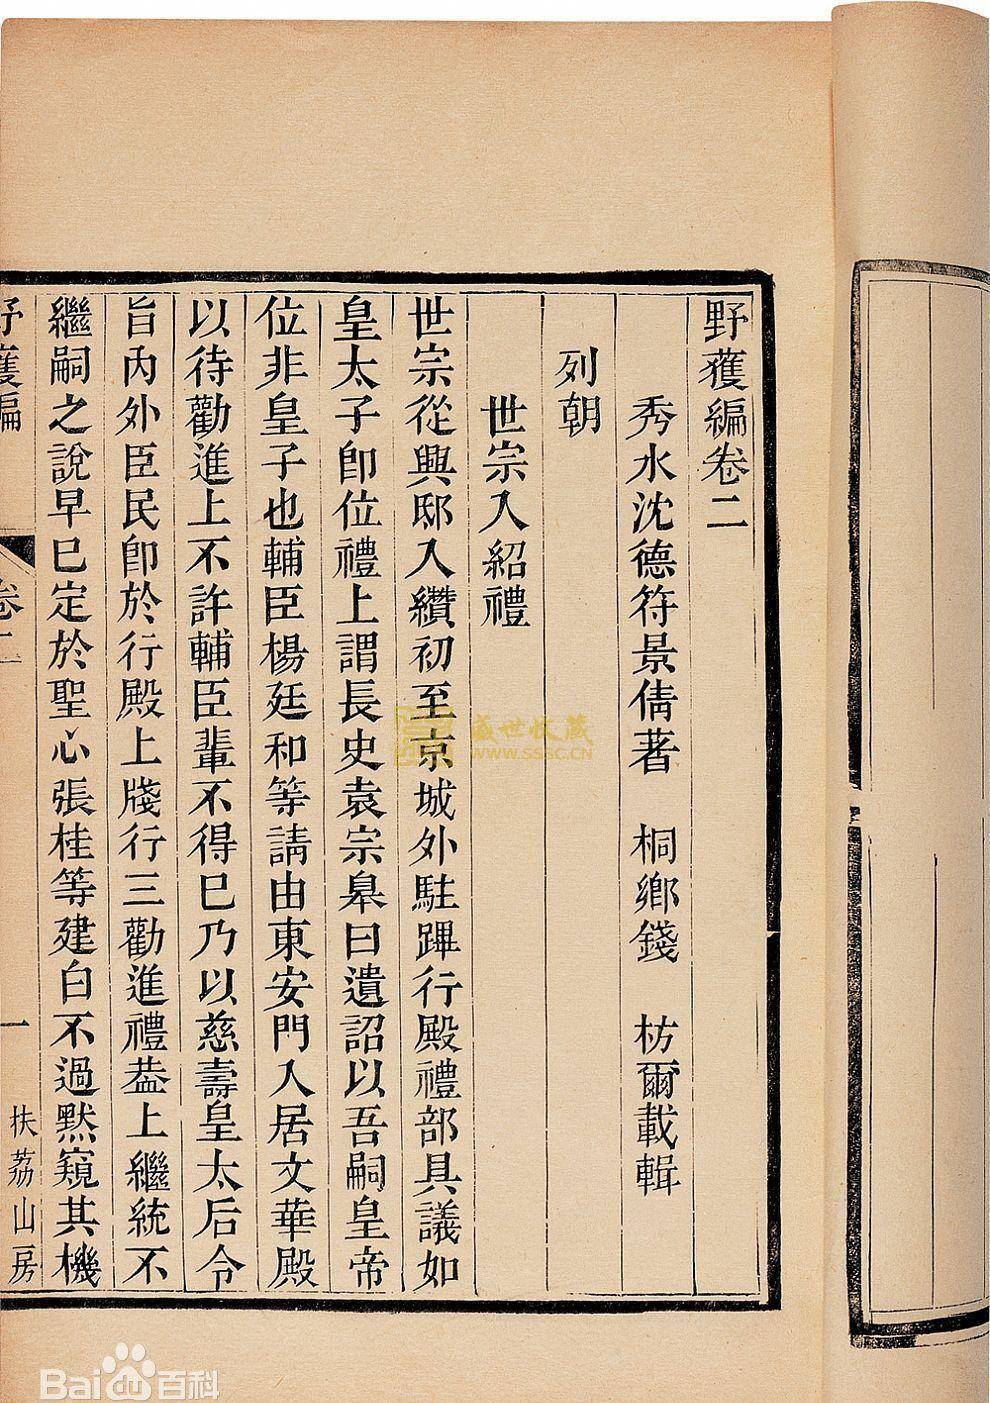 野獲編卷二
秀水沈德符景倩著　桐鄉錢　枋爾載輯
列朝
世宗入紹禮
世宗從興邸入纘初至京城外駐蹕行殿禮部具議如
皇太子卽位禮上謂長史袁宗臯曰遺詔以吾嗣皇帝
位非皇子也輔臣楊廷和等請由東安門入居文華殿
以待勸進上不許輔臣輩不得已乃以慈壽皇太后令
旨內外臣民卽於行殿上牋行三勸進禮葢上繼統不
繼嗣之說早已定於聖心張桂等建白不過默窺其機
野獲編　卷二　一　扶荔山房
盛世收藏
WWW.SSSC.CN
Bai du 百科